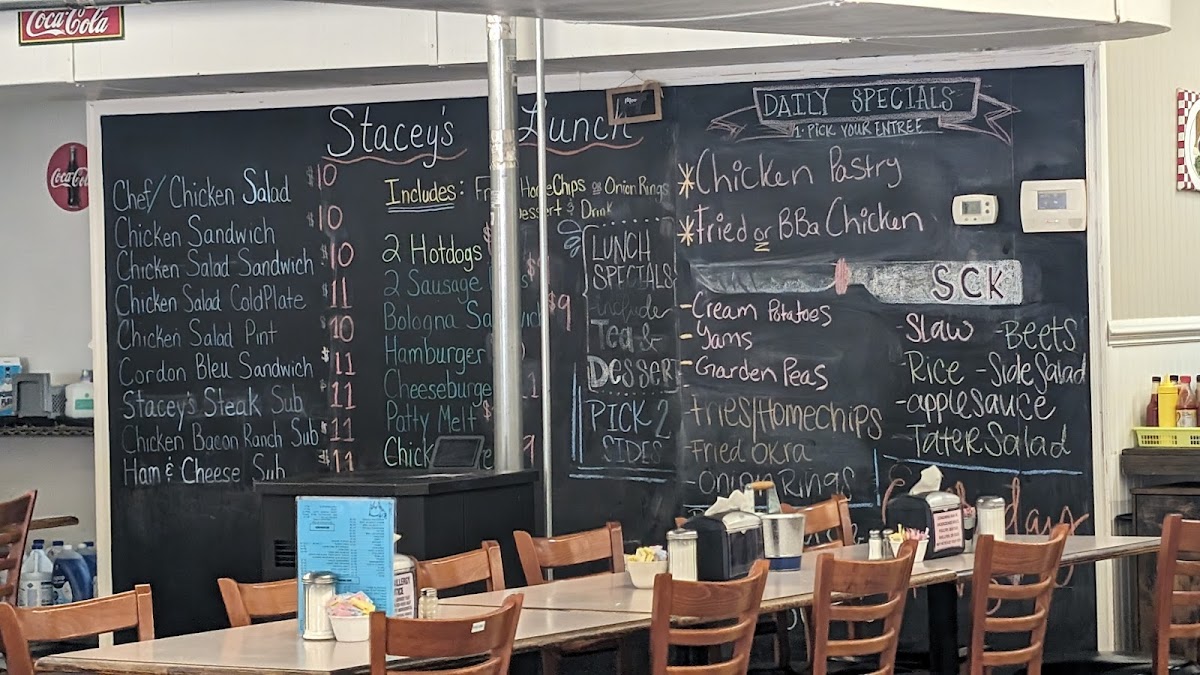 Coca-Cola
Coca-Cola
Stacey's Lunch
Chef/ Chicken Salad $10
Chicken Sandwich $10
Chicken Salad Sandwich $10
Chicken Salad ColdPlate $11
Chicken Salad Pint $10
Cordon Bleu Sandwich $11
Stacey's Steak Sub $11
Chicken Bacon Ranch Sub $11
Ham & Cheese Sub $11
Includes: Chips or Onion Rings
Dessert & Drink
2 Hotdogs
2 Sausage
Bologna $9
Hamburger
Cheeseburge
Patty Melt
LUNCH
SPECIALS
include
Tea &
Dessert
PICK 2
SIDES
DAILY SPECIALS
1. PICK YOUR ENTREE
*Chicken Pastry
*Fried or BBQ Chicken
SCK
-Cream Potatoes
-Yams
-Garden Peas
-Fries/Homechips
-Fried Okra
-Onion Rings
-Slaw -Beets
-Rice -Side Salad
-applesauce
-Tater Salad